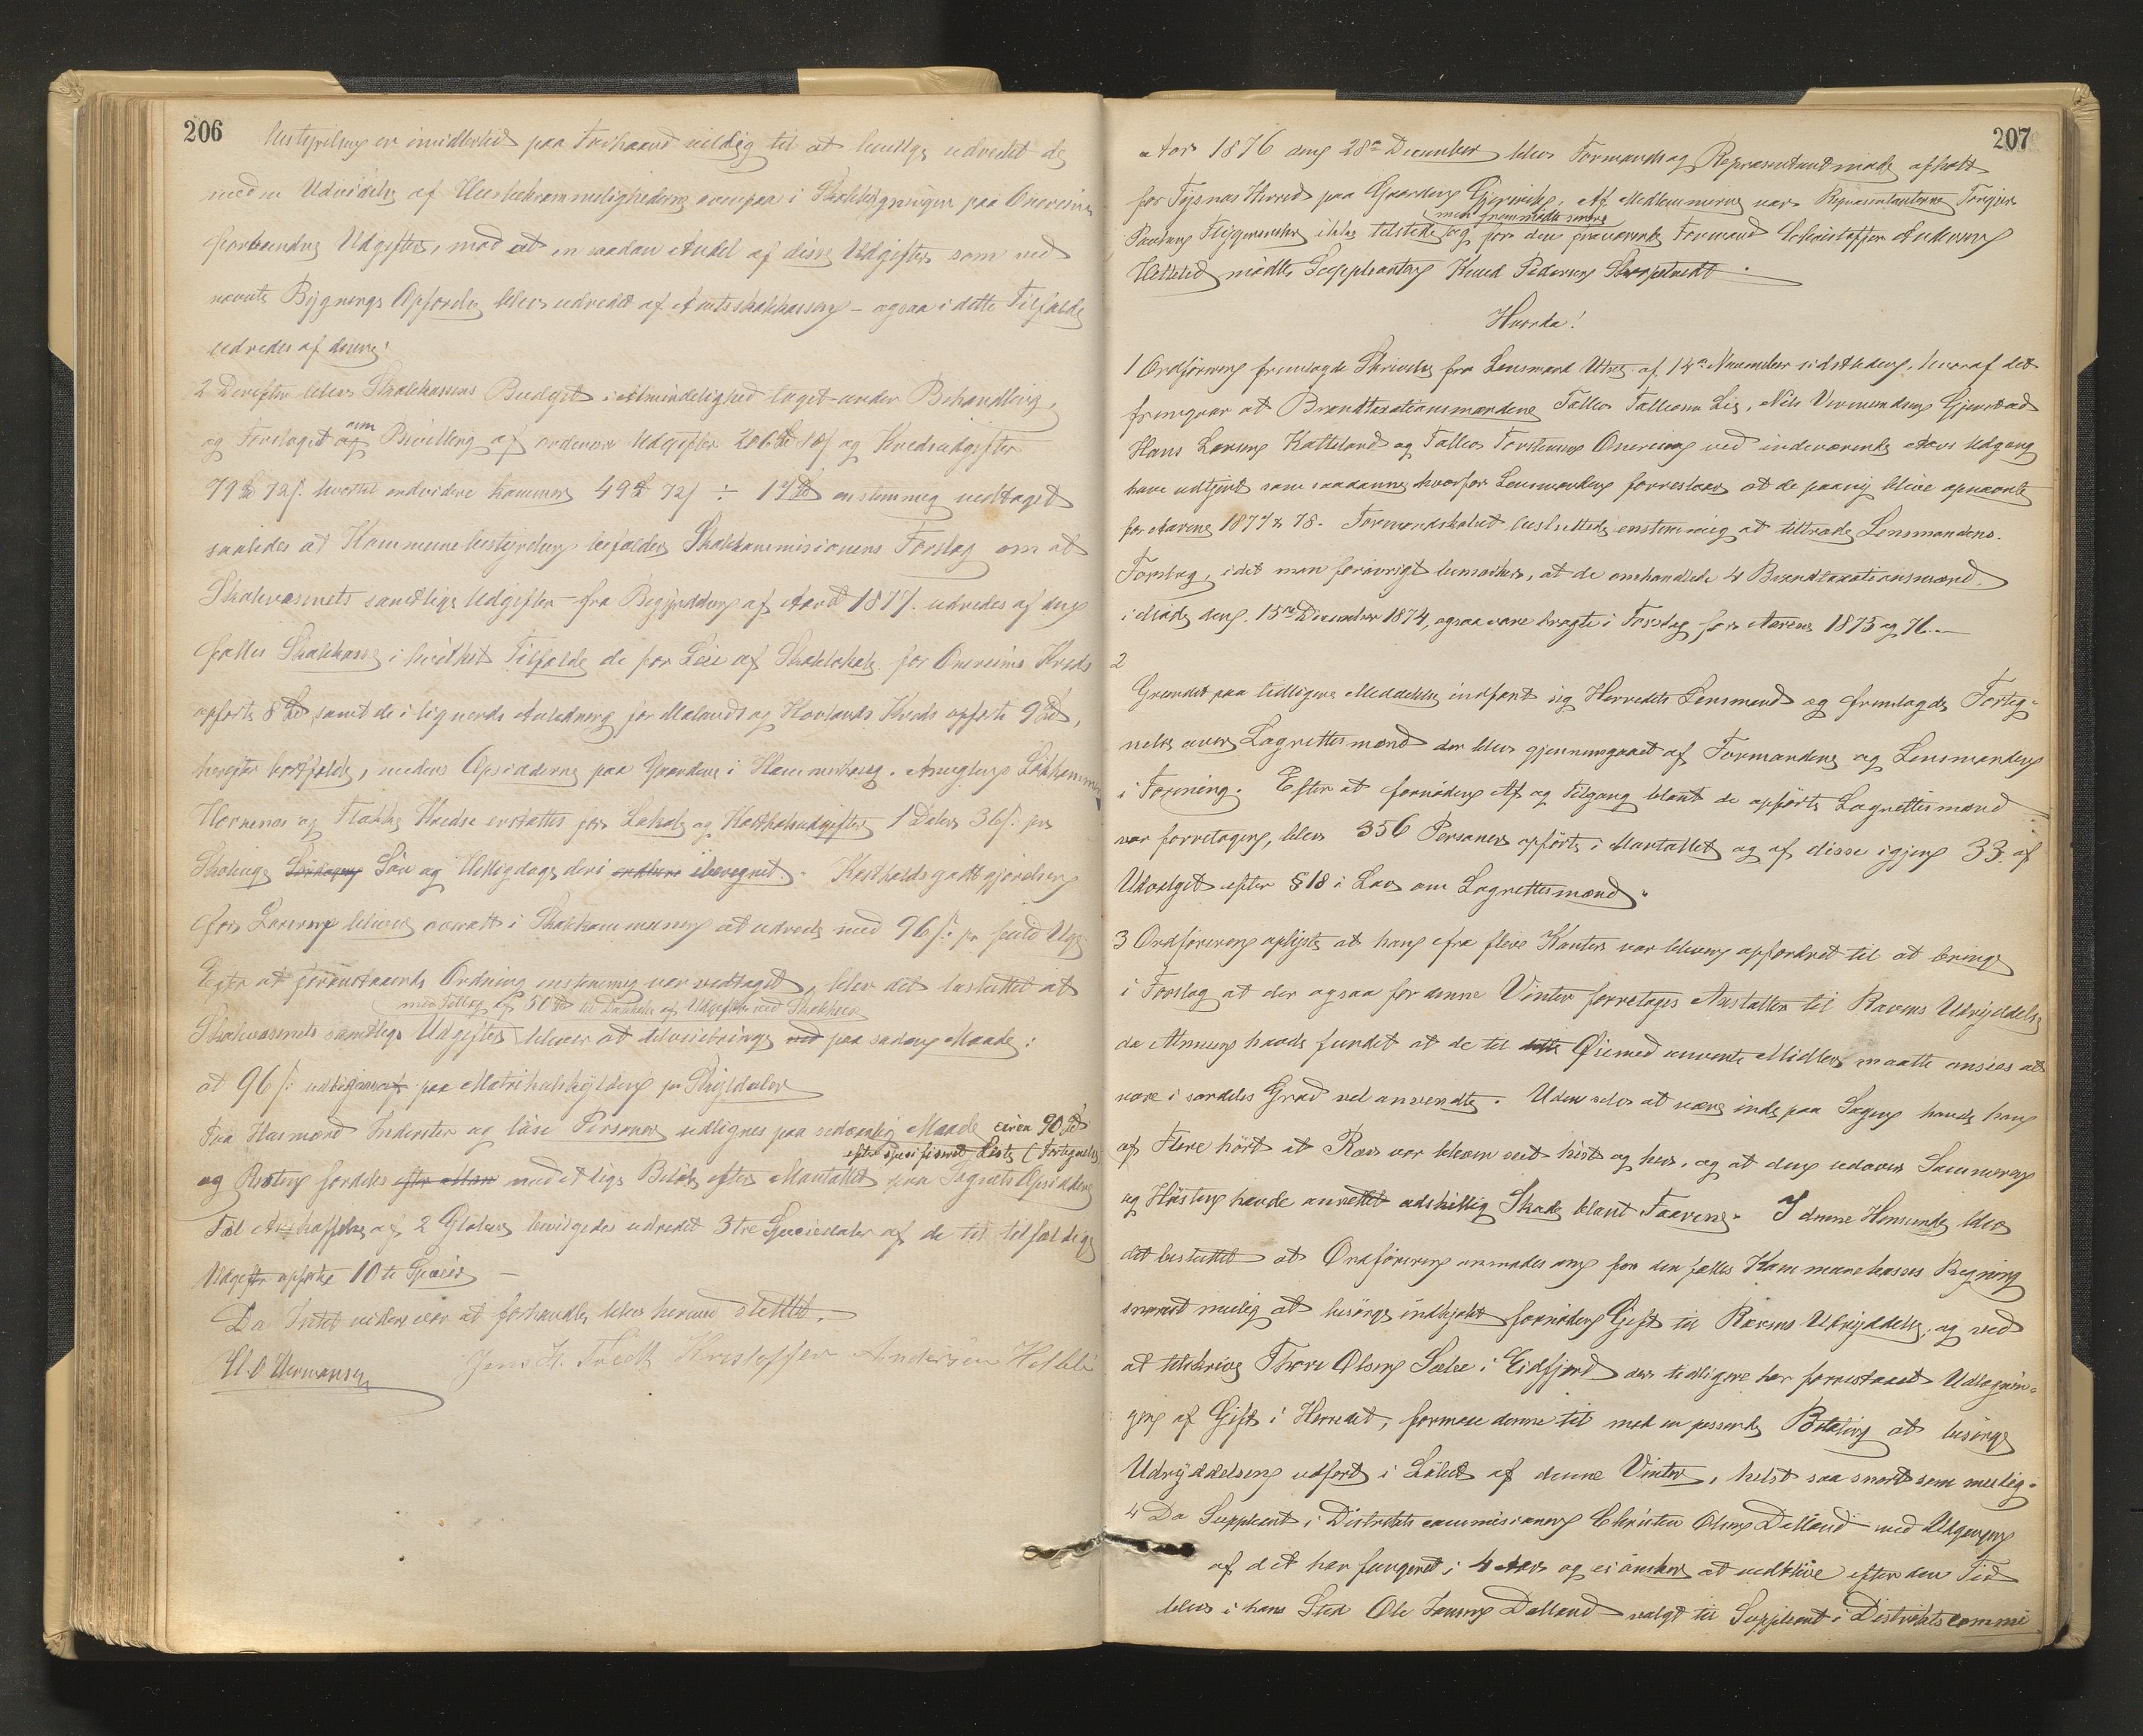 206
bestyrelsen er imidlertid paa Forhaand villig til at bevilge udredet de
med en Udvidelse af Husbekvemmelighederne ovenpaa i Skolebygningen paa Onereim
forbundne Udgifter, mod at en saadan Andel af disse Udgifter som ved
nævnte Bygnings Opførelse blev udredet af Amtsskolekassen – ogsaa i dette Tilfælde
udredes af denne!
2 Derefter blev Skolekassens Budget i Almindelighed taget under Behandling,
og Forslaget om Bevilling af ordinære Udgifter 206 og Kredsudgifter
79 72 hvortil endvidere kommer 49 72 ÷ enstemmig vedtaget
saaledes at Kommunebestyrelsen bifalder Skolekommisionens Forslag om at
Skolevæsenets samtlige Udgifter fra Begyndelsen af Aaret 1877 udredes af den
fælles Skolekasse i hvilket Tilfælde de for Leie af Skolelokale for Onereims Kreds
opførte 8 samt de i lignende Anledning for Malands og Hovlands Kreds opførte 9,
herefter bortfalde, medens Opsidderne paa Gaardene i Hammerhaug, Amyglen
og Flakke Kredse erstattes for Lokale og Kostholdsudgifter 1 Daler 36 s. pr
Skoleuge Søn og Helligdage deri iberegnet. Kostholdsgodtgjørelsen
for Læreren bliver overalt i Skolekommunen at udrede med 96 s. pr fuld Uge
Efter at foranstaaende Ordning enstemmig var vedtaget, blev det besluttet at
med Tillæg af 50 til Udgifter ved Skolehuse
Skolevæsenets samtlige Udgifter bliver at tilveiebringe paa saadan Maade:
at 96 s. paa Matrikulskylden pr Skylddaler
Fra Husmænd Inderster og løse Personer udlignes paa sedvanlig Maade circa 90
efter specificeret Liste (Fortegnelse)
og Resten fordeles med et lige Beløb efter Mantallet paa Sognets Opsiddere
Til Anskaffelse af 2 Glober bevilgedes udredet 3tre Speciedaler af de til tilfældige
Udgifter opførte 10 ti Specier –
Da Intet videre var at forhandle blev hermed sluttet.
Kristoffer Andersen Hetleli
207
Aar 1876 den 28de December blev Formands og Repræsentantmøde afholdt
for Tysnæs Herred paa Gaarden Gjerevik. Af Medlemmerne var Repræsentanterne Torgier
men fremmødte senere
ikke tilstede og for den fraværende Formand Christoffer Andersen
Hetleli mødte Suppleanten Knud Pedersen
Hvorda!
1 Ordføreren fremlagde Skrivelse fra Lensmand af 14de November sidstleden, hvoraf det
fremgaar at Brandtaxationsmændene Tolleiv Lie, Nils Gjerstad
Hans Larsen Katteland og Tollev Torstensen Onereim ved indeværende Aars Udgang
have udtjent som saadanne hvorfor Lensmanden foreslaar at de paany blive opnævnte
for Aarene 1877 & 78. Formandskabet besluttede enstemmig at tiltræde Lensmandens
Forslag, idet man forøvrigt bemærker, at de omhandlede 4 Brandtaxationsmænd
i Møde den 15de December 1874, ogsaa vare bragte i Forslag for Aarene 1875 og 76.
2
Grundet paa tidligere Meddelelse indfant sig Herredets Lensmand og fremlagde Forteg-
nelse over Lagrettesmænd der blev gjennemgaaet af Formanden og Lensmanden
i Forening. Efter at fornøden Af og Tilgang blant de opførte Lagrettesmænd
var forretagen, blev 356 Personer opførte i Mantallet og af disse igjen 33 af
Udvalget efter § 18 i Lov om Lagrettesmænd.
3 Ordføreren oplyste at han fra flere Kanter var bleven opfordret til at bringe
i Forslag at der ogsaa for denne Vinter forretages Anstalter til Rævens Udryddelse
da Almuen havde fundet at de til Øiemed anvendte Midler maatte ansees at
være i særdeles Grad vel anvendte. Uden selv at være inde paa Sagen havde han
af Flere hørt at Ræv var bleven seet hist og her, og at den udover Sommeren
og Høsten havde anrettet adskillig Skade blant Faarene. I denne Henseende blev
det besluttet at Ordføreren anmodes om for den fælles Kommunekasses Regning
snarest mulig at besørge indkjøbt fornøden Gift til Rævens Udryddelse, og ved
at tilskrive Thore Olsen Sælee i Eidfjord der tidligere har forrestaaet Udlægnin-
gen af Gift i Herredet, formaa denne til mod en passende Betaling at besørge
Udryddelsen udført i Løbet af denne Vinter, helst saa snart som mulig.
4 Da Suppleant i Distriktscommisionen Christen Olsen Dalland ved Udgangen
af det har fungeret i 4 Aar og ei ønsker at vedblive efter den Tid
blev i hans Sted Ole Jansen Dalland valgt til Suppleant i Distriktscommi